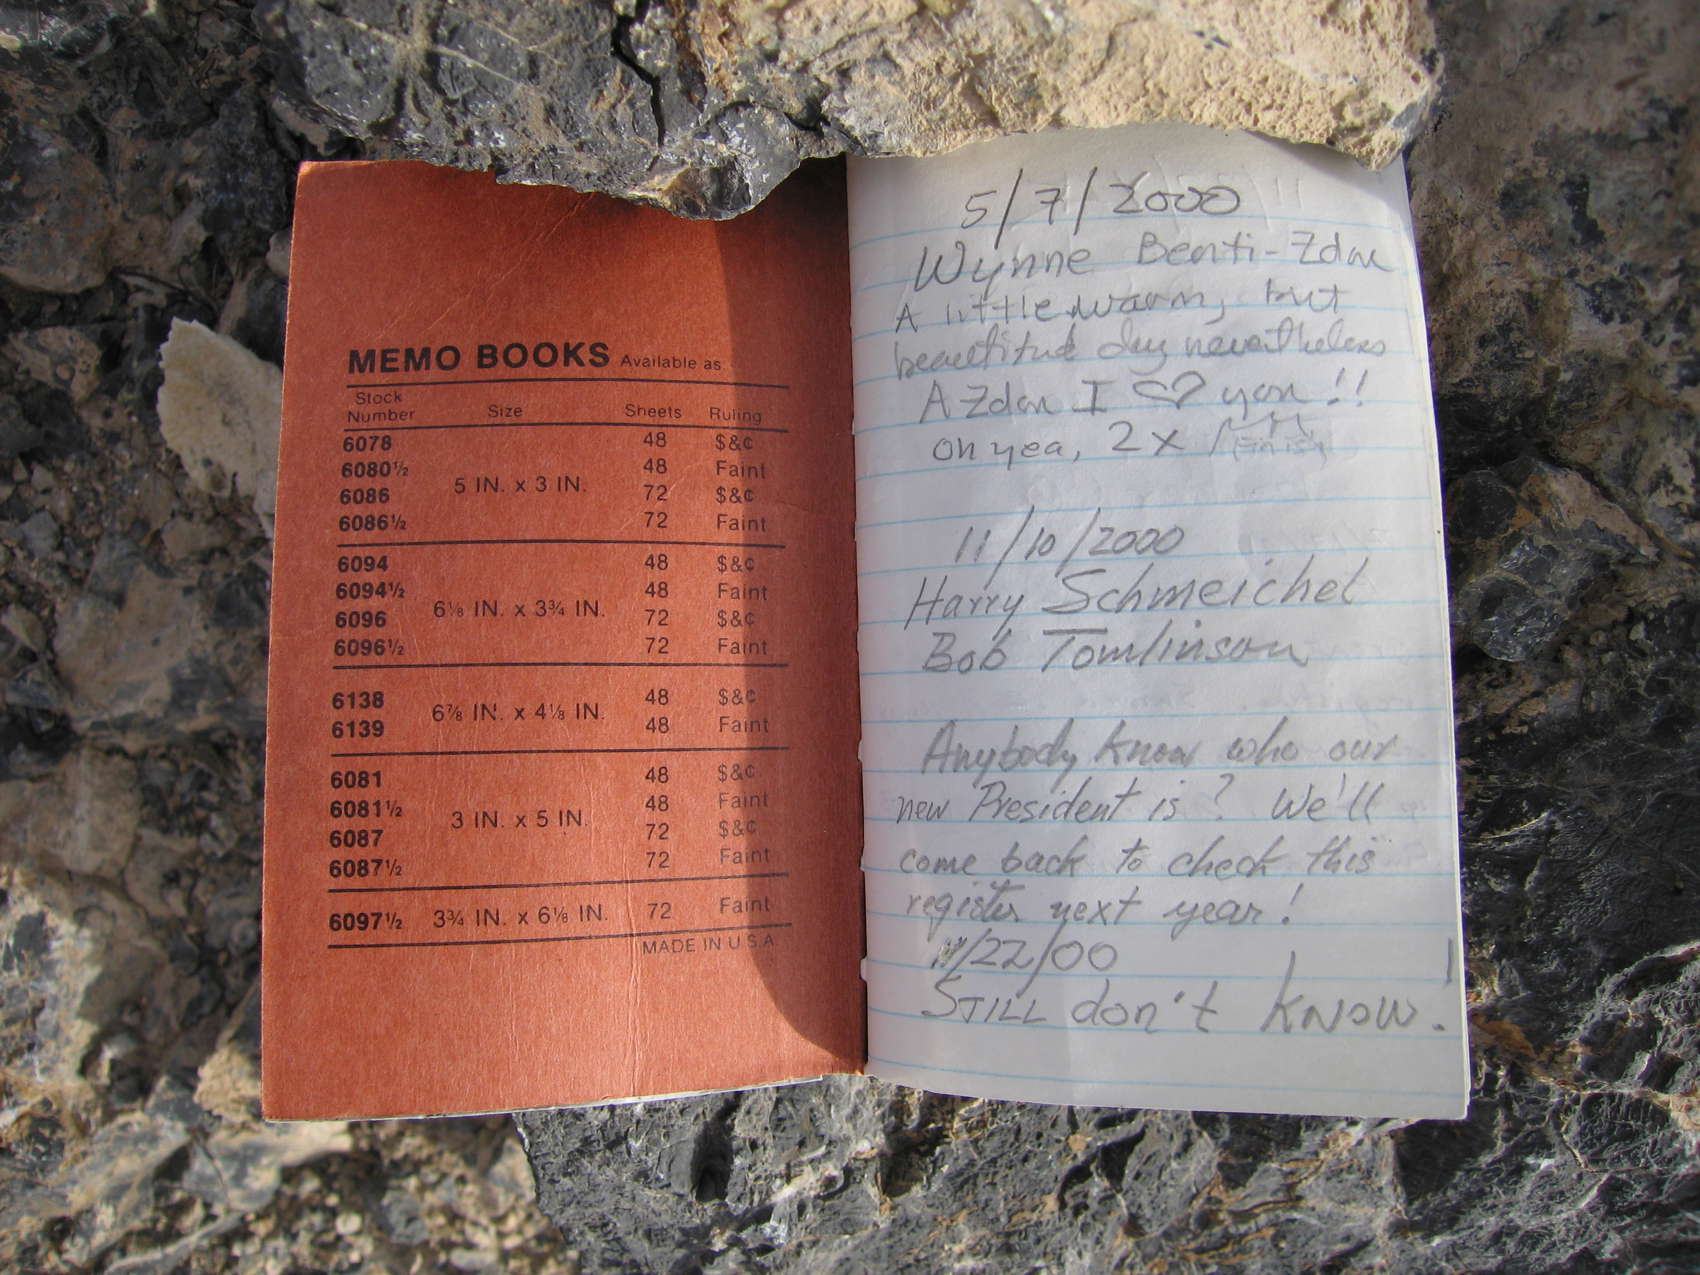 MEMO BOOKS Available as:
Stock Number Size Sheets Ruling
6078 48 $&¢
6080½ 48 Faint
5 IN. x 3 IN.
6086 72 $&¢
6086½ 72 Faint
6094 48 $&¢
6094½ 48 Faint
6⅛ IN. x 3¾ IN.
6096 72 $&¢
6096½ 72 Faint
6138 48 $&¢
6⅞ IN. x 4⅛ IN.
6139 48 Faint
6081 48 $&¢
6081½ 48 Faint
3 IN. x 5 IN.
6087 72 $&¢
6087½ 72 Faint
6097½ 3¾ IN. x 6⅛ IN. 72 Faint
MADE IN U.S.A.
5/7/2000
Wynne Benti-Zdon
A little warm, but
beautiful day nevertheless
A Zdon I ♡ you!!
oh yea, 2x
11/10/2000
Harry Schmeichel
Bob Tomlinson
Anybody know who our
new President is? We'll
come back to check this
register next year!
11/22/00
STILL don't KNOW!